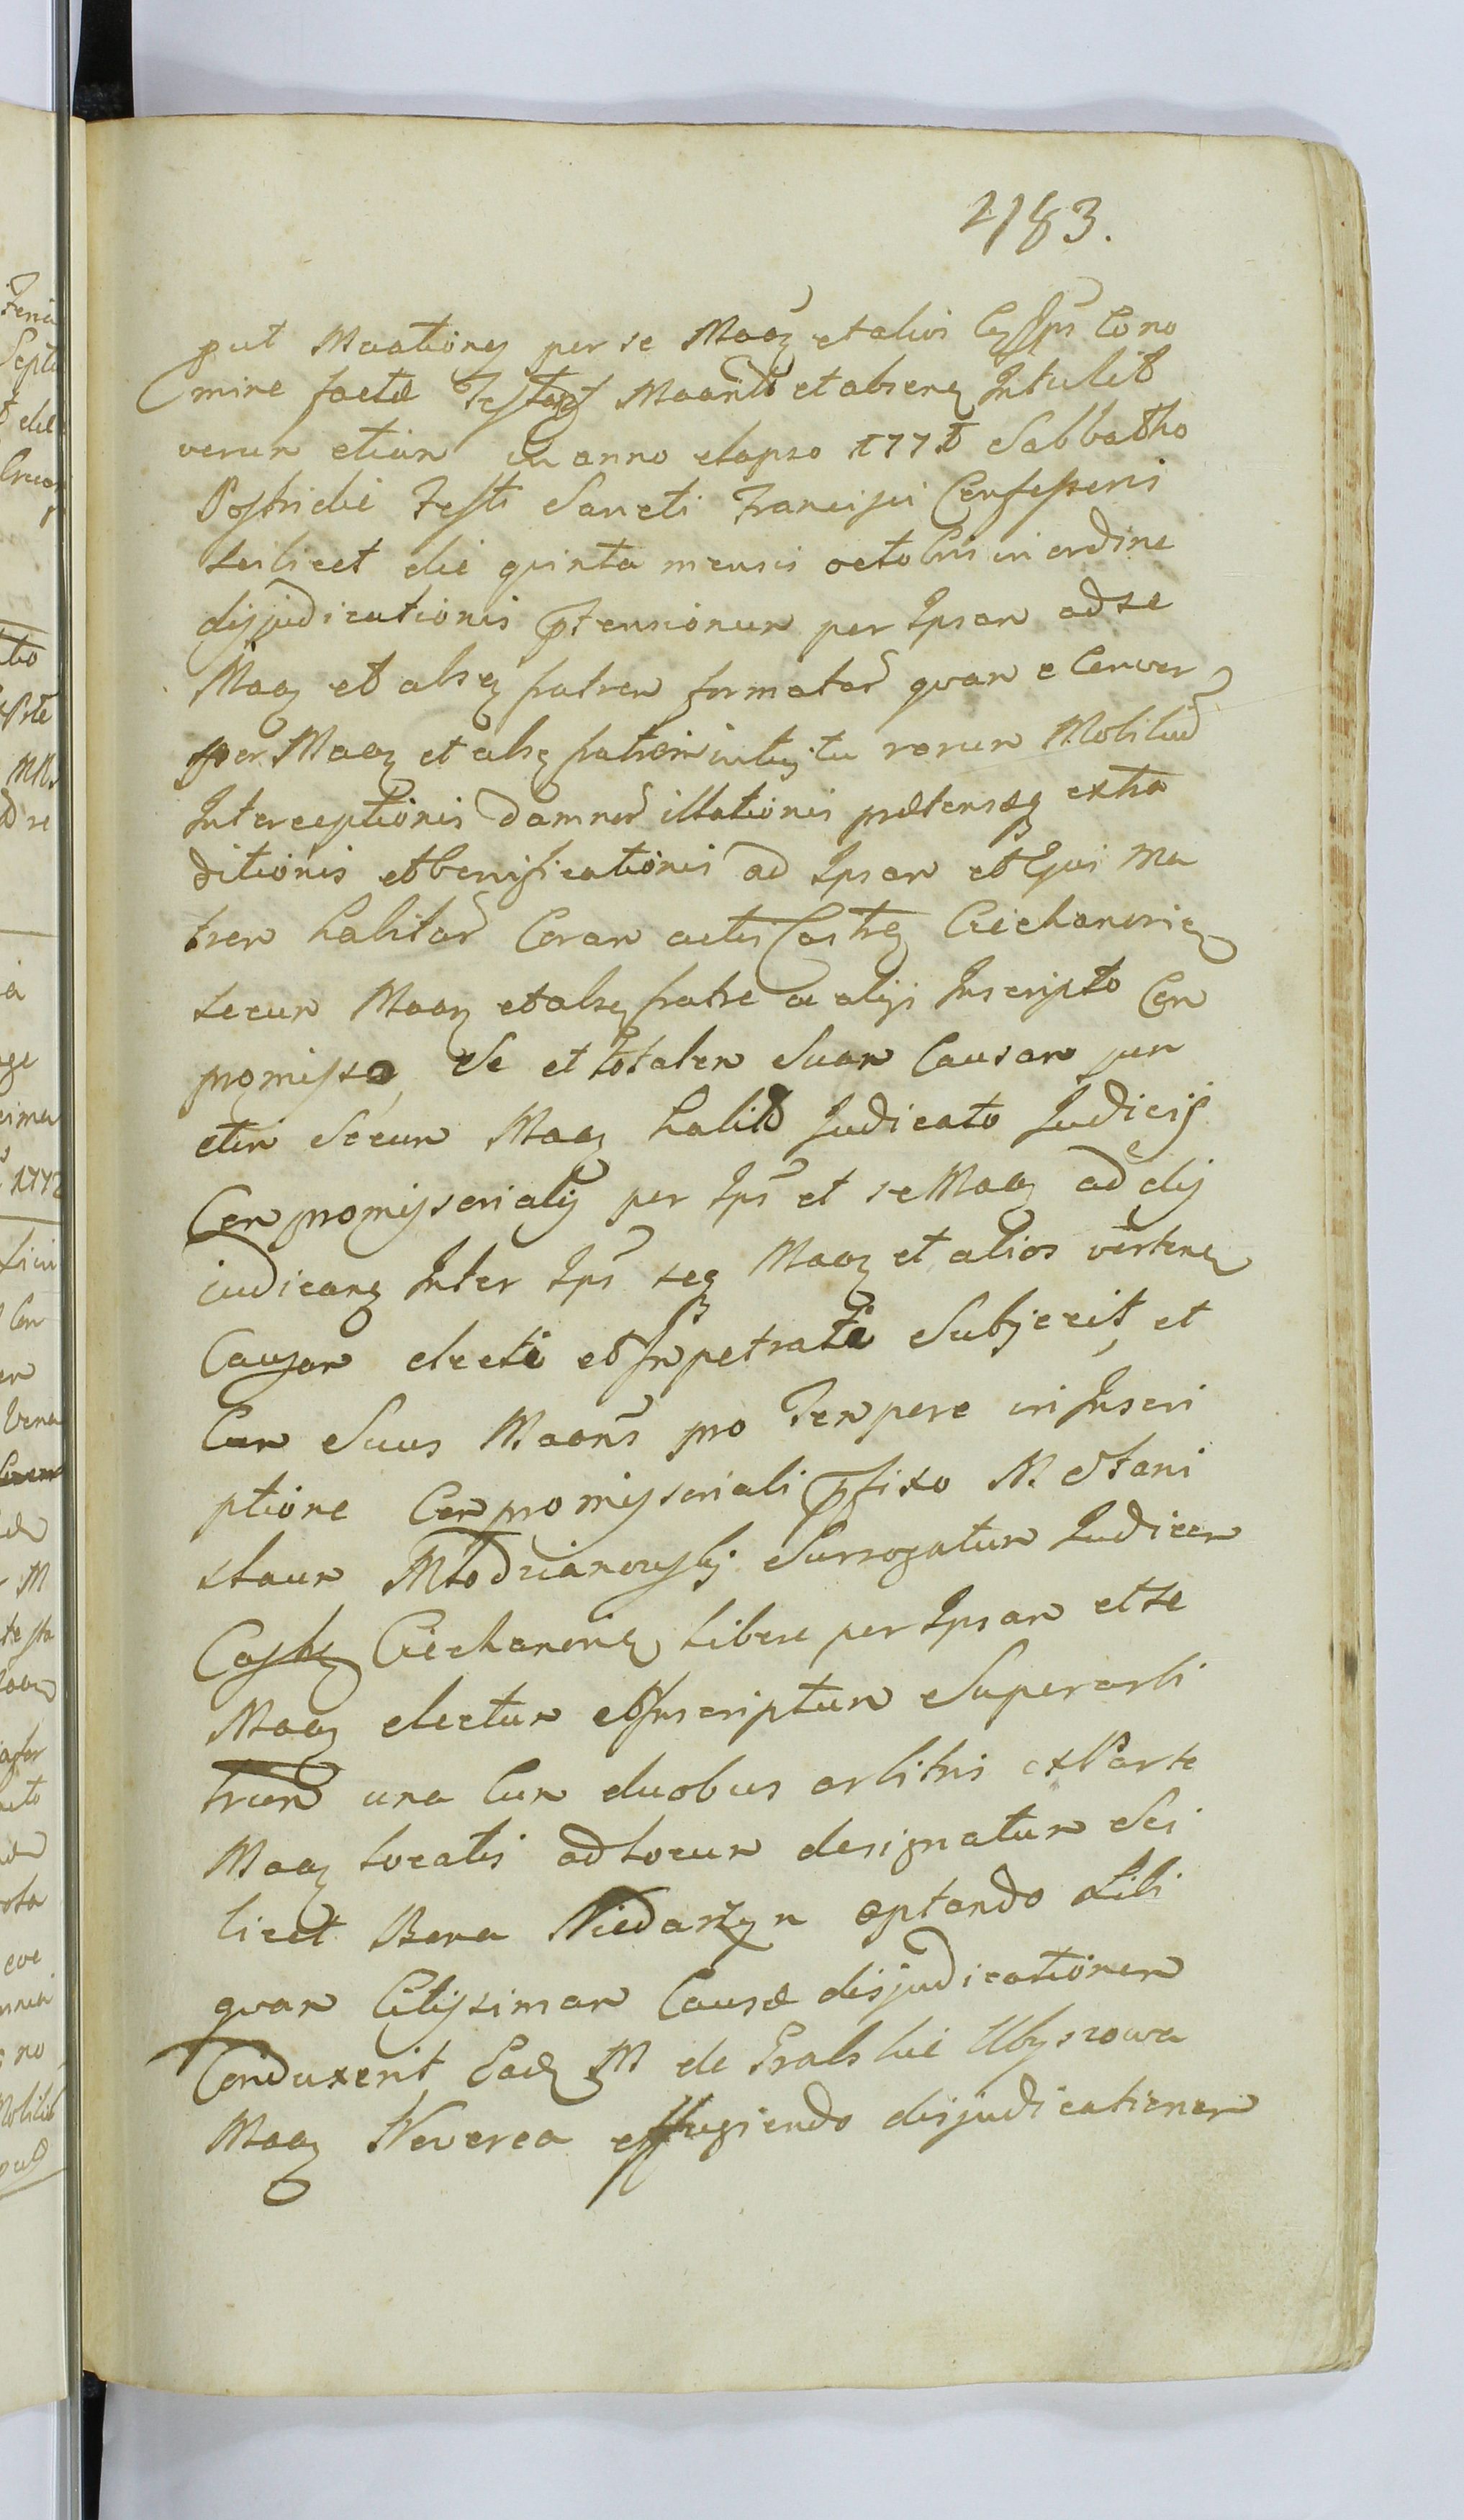 2183.
put Maationẽ per se Maaz et alios Cono
mine factæ Maantẽ et absenz Intulit
verum etiam in anno elapso 1771 Sabbatho
Postridie Festi Sancti Francisci Confessoris
scilicet die quinta mensis octobris in ordine
disjudicationis prtensionum per Ipsam ad se
Maaz et absz fratrem format quam e Conver
per Maaz et absz fratrem intuitu rerum Mobiliu
Interceptionis damnor illationis prætensæq extra
ditionis et bonificationis ad Ipsam et Ejus ma
trem habitar Coram actis Castrz Ciechanoviẽ
secum Maaz et absz fratre ac alijs Inscripto Com
promisso, Se et totalem Suam Causam jun
ctim Secum Maaz habito Judicato Judicijs
Compromissorialij per Ips et se Maaz ad dis
iudicanz Inter Ips seq Maaz et alios vertenz
Causam electi et Impetrati Subjecit, et
Cum Suus Maans pro Tempore in Inscri
ptione Compromissoriali prfixo M. Stani
slaum Młodzianowskj Surrogatum Judicem
Castrz Ciechanoviẽ libere per Ipsam et se
Maaz electum et Inscriptum Superarbi
trum una Cum duobus arbitris ex Parte
Maaz locatis ad locum designatum Sci
licet Bona Niedarzyn optando Sibi
quam Citissimam Causæ disjudicationem
Conduxerit Eadz M de Pralskie Ubyszowa
Maaz Noverca effugiendo disjudicationem